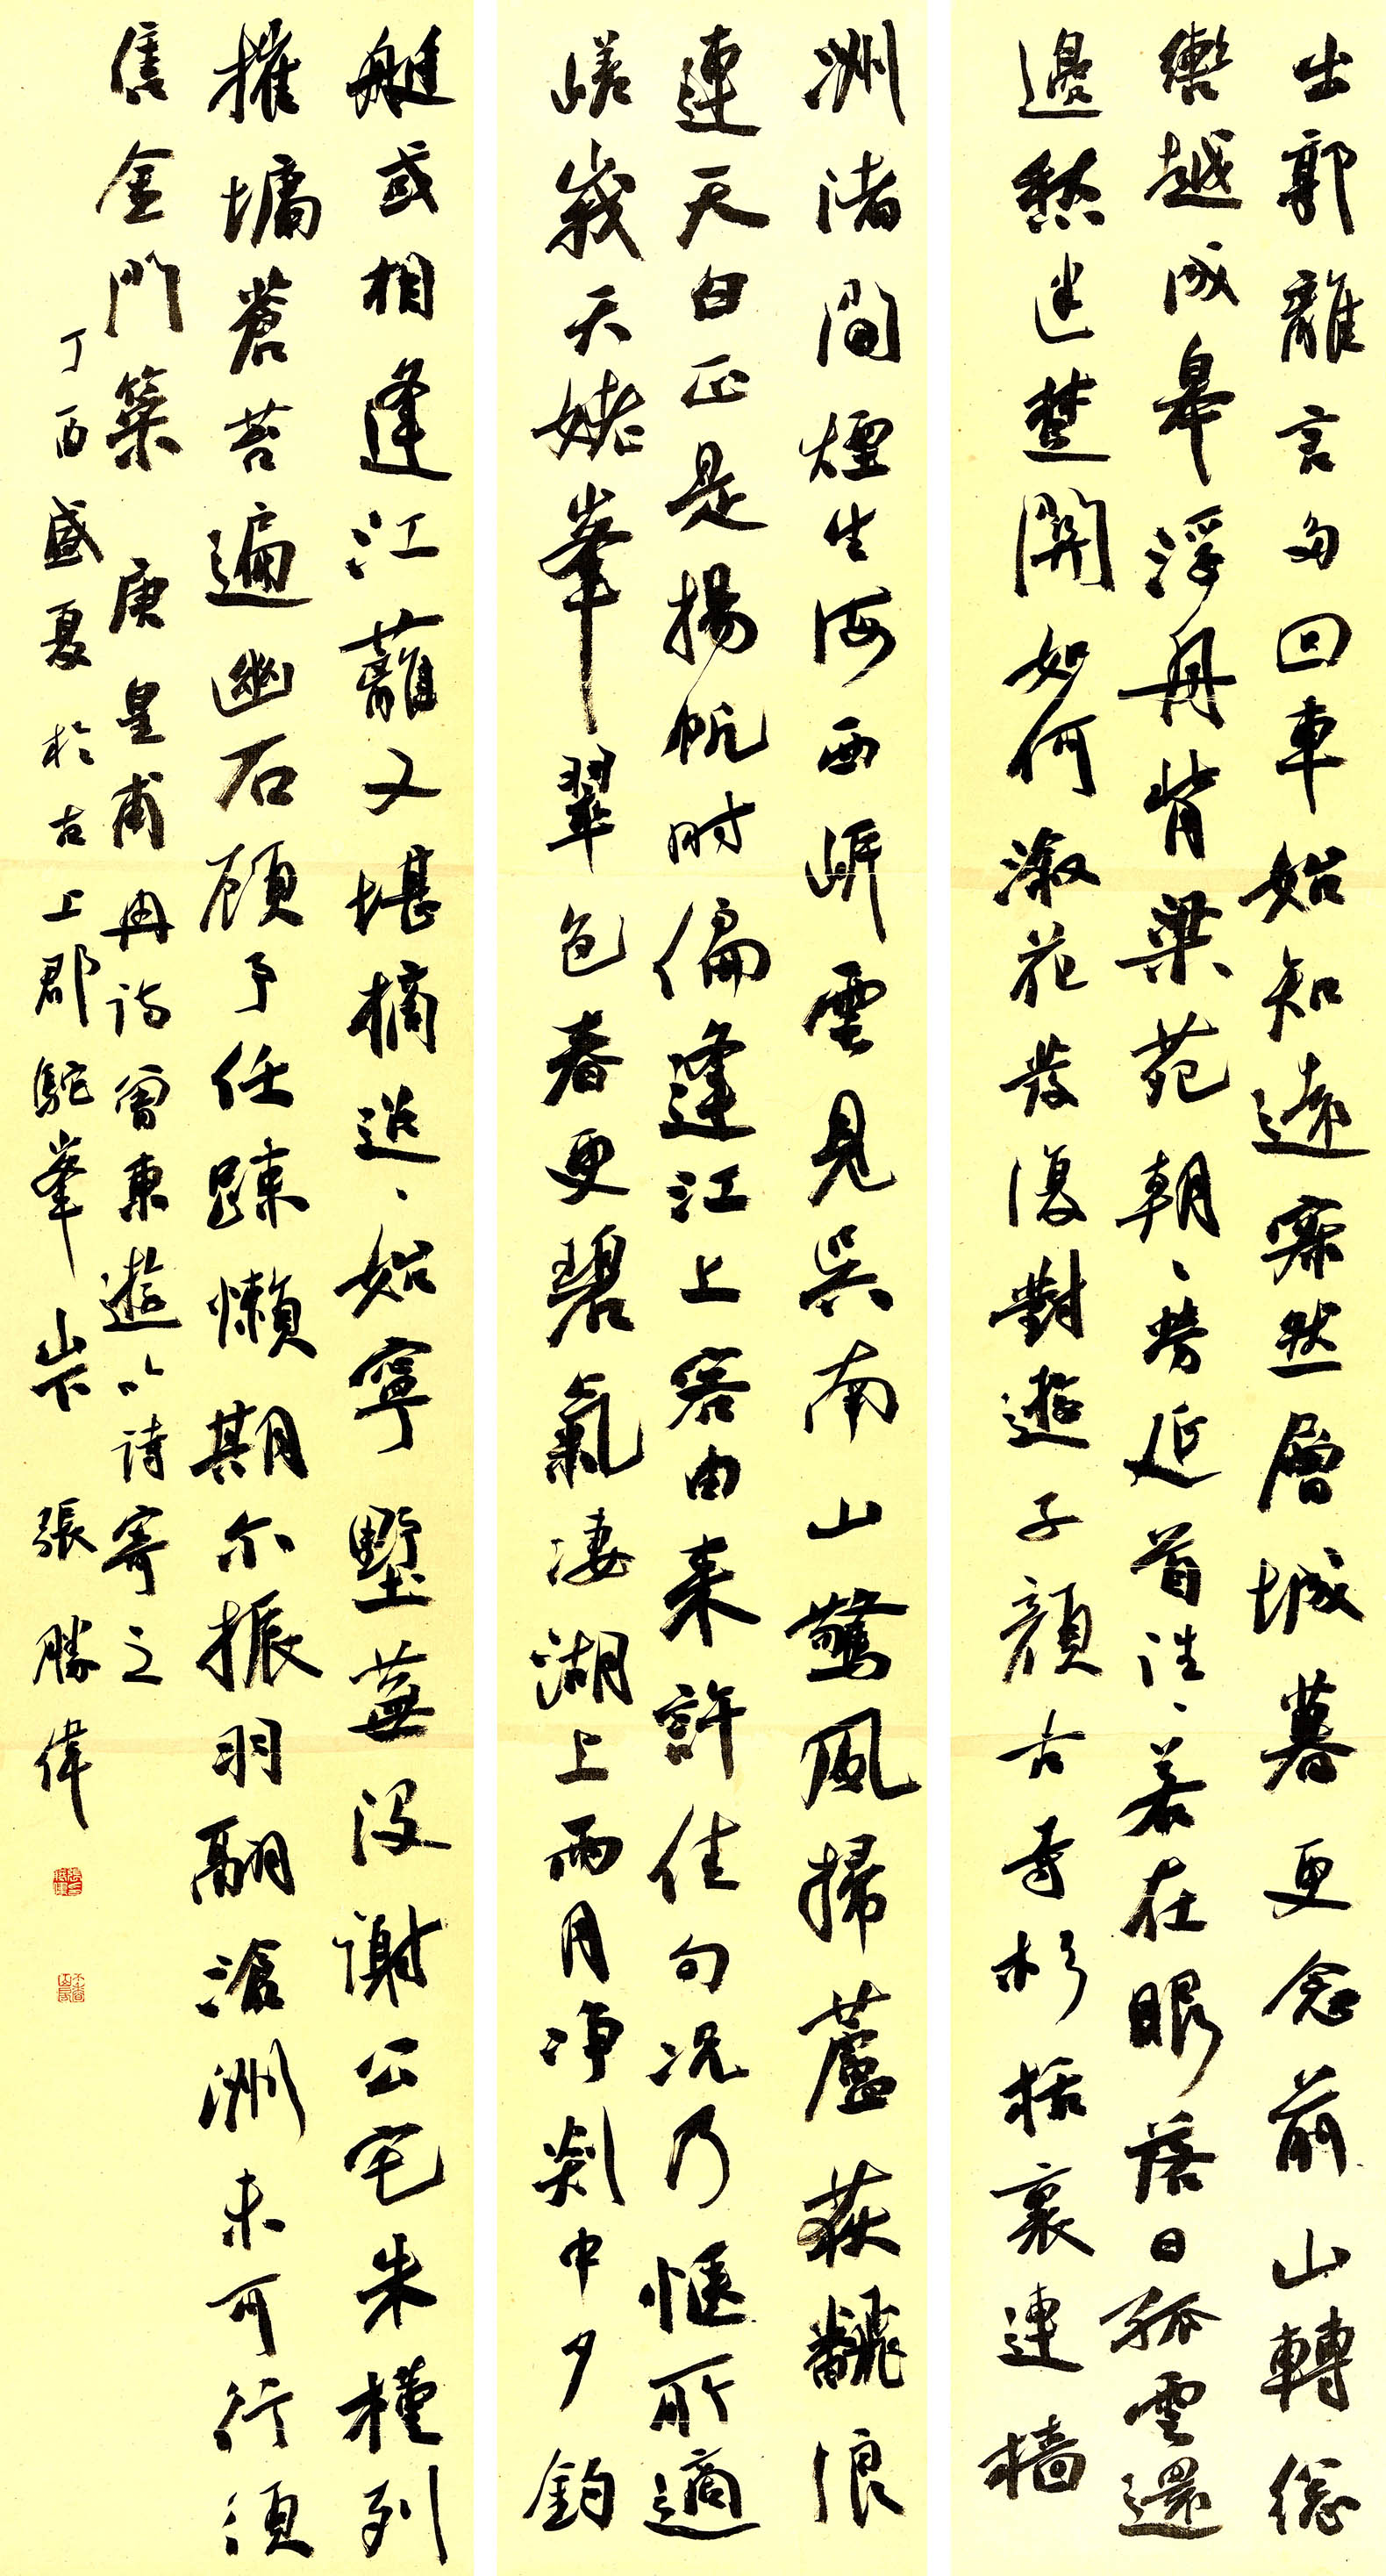 出郭離言多回車始知遠寂然層城暮更念前山轉總
轡越成皋浮舟背梁苑朝〻勞延首往〻若在眼落日孤雲還
邊愁迷楚關如何溆花發復對遊子顏古寺杉栝裏連檣
洲渚間煙生海西岸雲見吳南山驚風掃蘆荻飜浪
連天白正是揚帆時偏逢江上客由来許佳句况乃愜所適
嵯峨天姥峯翠色春更碧氣凄湖上雨月净剡中夕釣
艇或相逢江蘺又堪摘迢〻始寧墅蕪没謝公宅朱槿列
摧墉蒼苔遍幽石顧予任踈懶期尔振羽翮滄洲未可行須
售金門策 唐皇甫冉詩曾東遊以詩寄之
丁酉盛夏於古上郡駝峯山下張勝偉